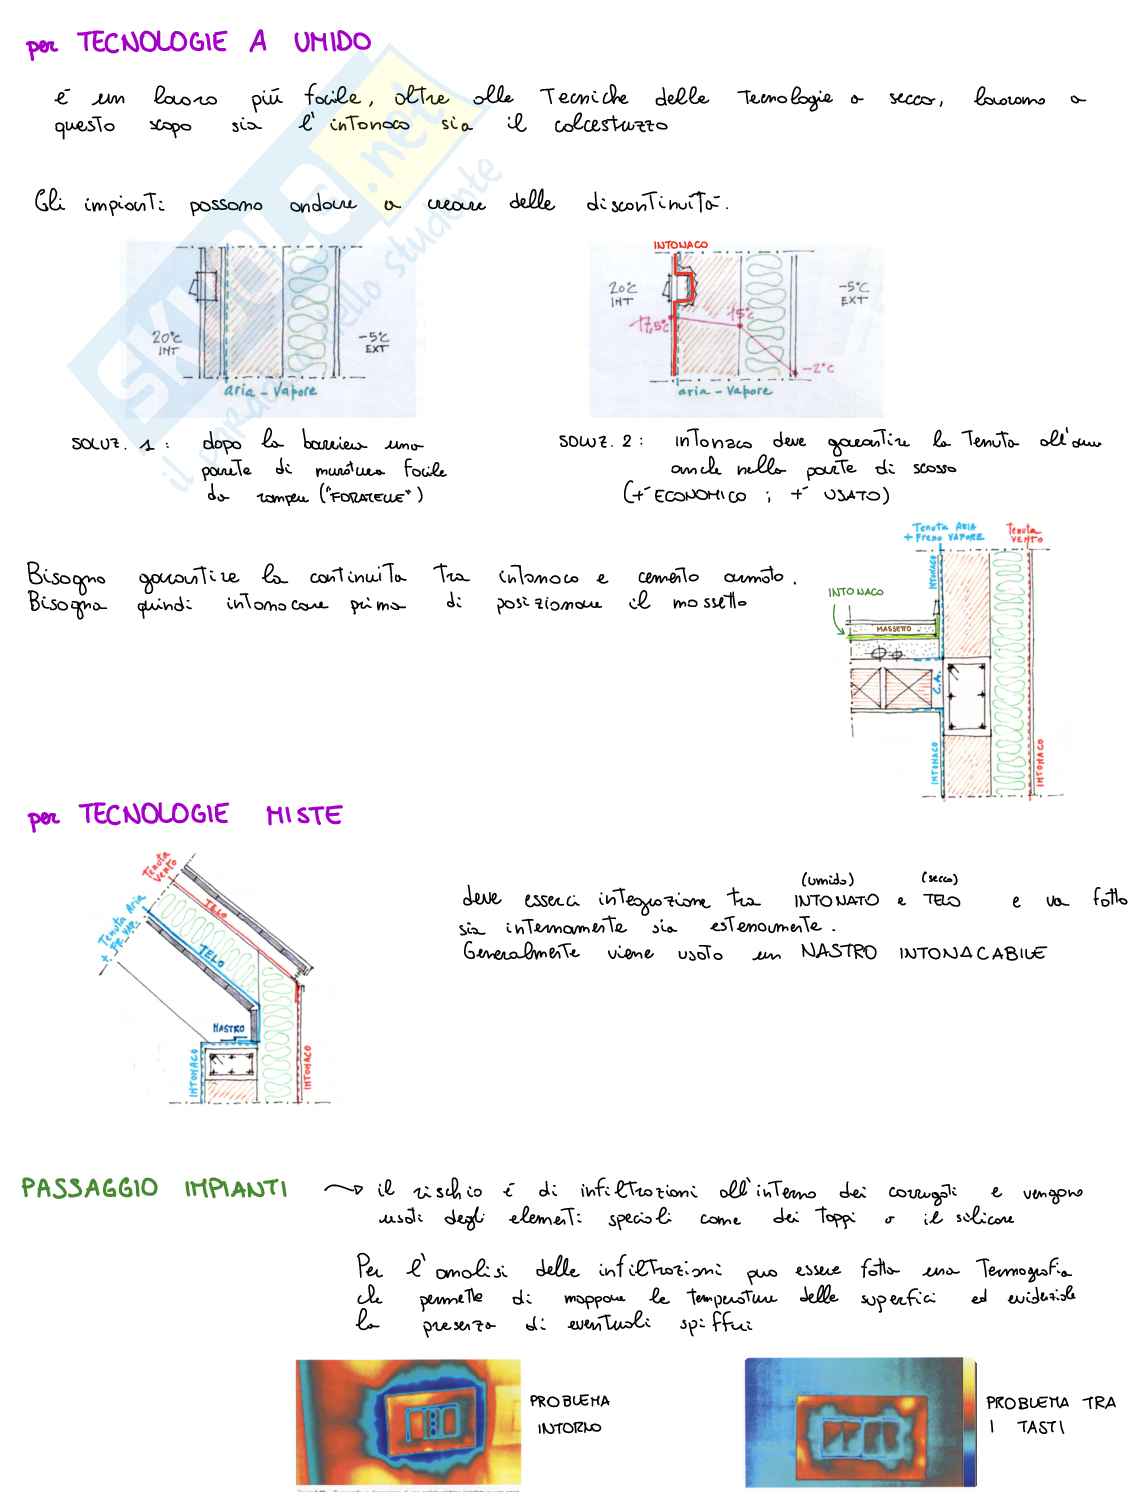 per TECNOLOGIE A UMIDO
è un lavoro più facile, oltre alle Tecniche delle Tecnologie a secco, lavorano a
questo scopo sia l'intonaco sia il calcestruzzo
Gli impianti possono andare a creare delle discontinuità.
20°C
INT
-5°C
EXT
aria - vapore
INTONACO
20°C
INT
-5°C
EXT
17,5°C
15°C
-2°C
aria - vapore
SOLUZ. 1: dopo la barriera una
parete di muratura facile
da rompere ("FORATELLE")
SOLUZ. 2: intonaco deve garantire la Tenuta all'aria
anche nella parte di scasso
(+ ECONOMICO ; + USATO)
Bisogna garantire la continuità tra intonaco e cemento armato.
Bisogna quindi intonacare prima di posizionare il massetto
Tenuta ARIA
+ Freno VAPORE
Tenuta
VENTO
INTONACO
INTONACO
MASSETTO
C.A.
INTONACO
INTONACO
per TECNOLOGIE MISTE
Tenuta
Vento
Tenuta Aria
+ FR. VAP.
TELO
TELO
NASTRO
INTONACO
INTONACO
(umido) (secco)
deve esserci integrazione tra INTONATO e TELO e va fatta
sia internamente sia esternamente.
Generalmente viene usato un NASTRO INTONACABILE
PASSAGGIO IMPIANTI → il rischio è di infiltrazioni all'interno dei corrugati e vengono
usati degli elementi speciali come dei tappi o il silicone
Per l'analisi delle infiltrazioni può essere fatta una Termografia
che permette di mappare le temperature delle superfici ed evidenziale
la presenza di eventuali spifferi
PROBLEMA
INTORNO
PROBLEMA TRA
I TASTI
SKUOLA.net
il paradiso dello studente